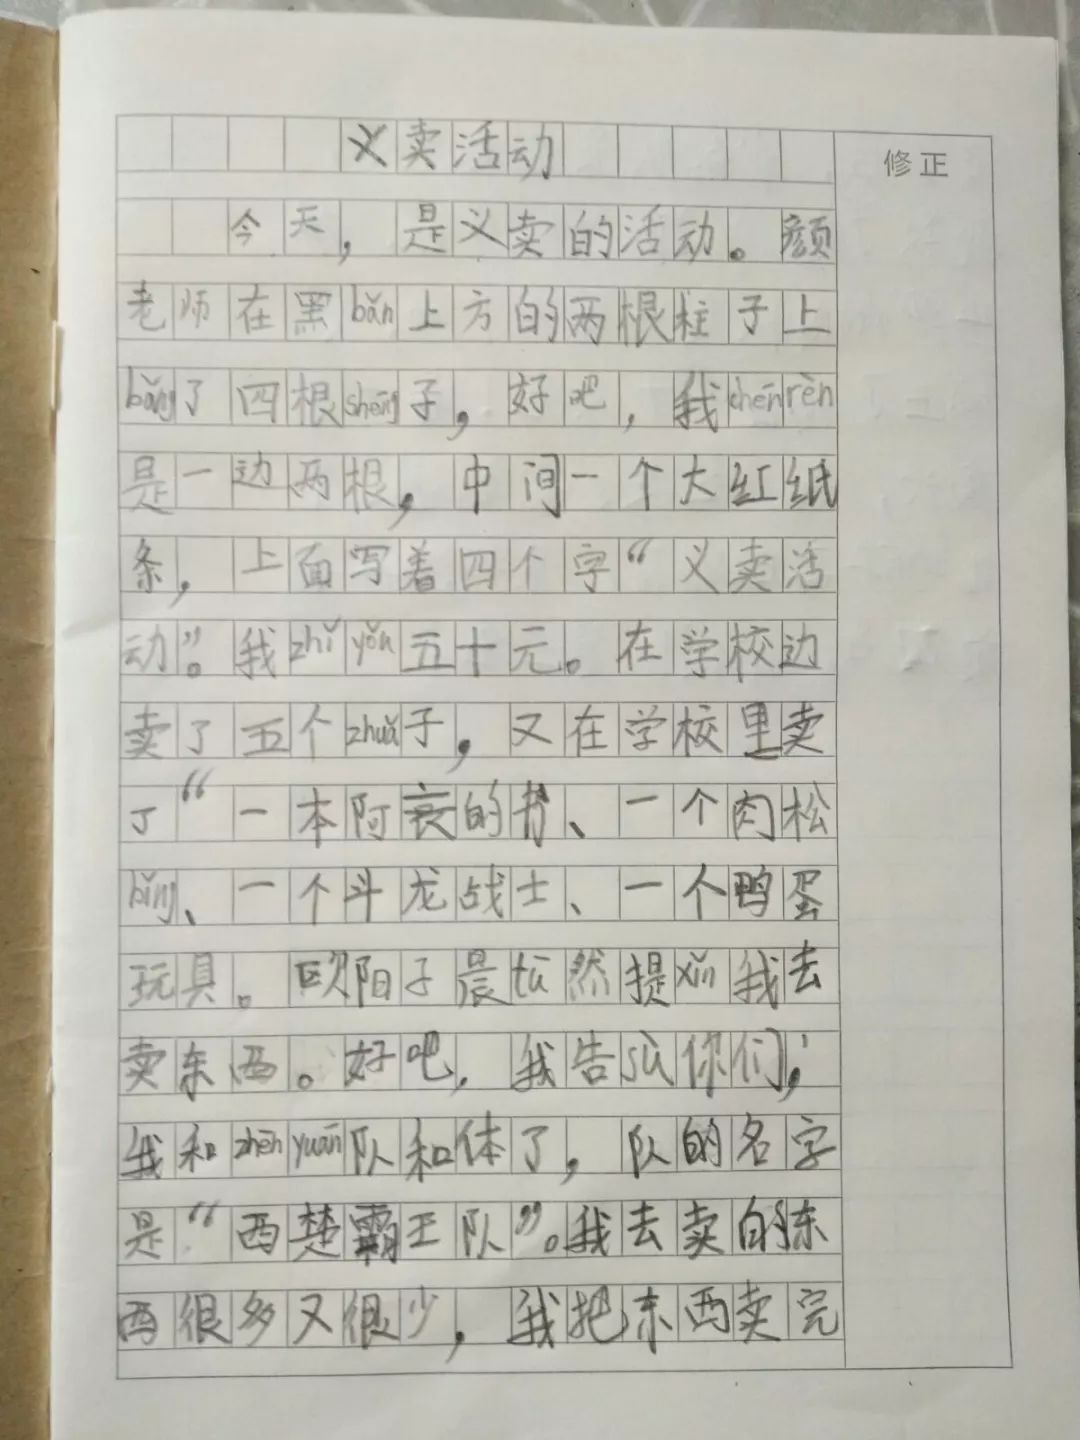 义卖活动
修正
今天，是义卖的活动。颜
老师在黑bǎn上方的两根柱子上
bǎng了四根shéng子，好吧，我chénrèn
是一边两根，中间一个大红纸
条，上面写着四个字“义卖活
动”。我zhǐ yǒu五十元。在学校边
卖了五个zhuǎ子，又在学校里卖
了“一本阿衰的书、一个肉松
bǐng、一个斗龙战士、一个鸭蛋
玩具。欧阳子晨tū然提xǐn我去
卖东西。好吧，我告sù你们，
我和zhēn yuán队和体了，队的名字
是“西楚霸王队”。我去卖的东
西很多又很少，我把东西卖完